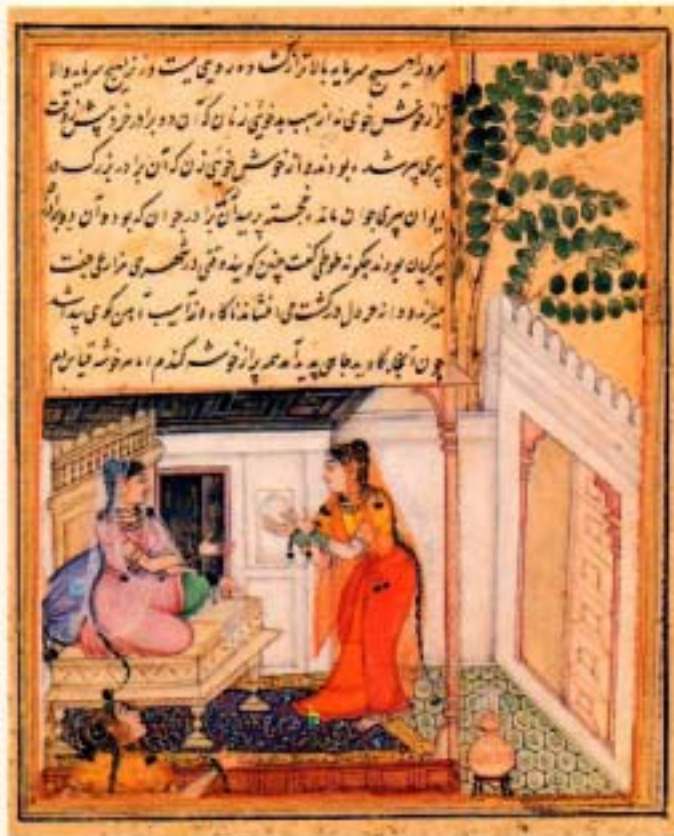 مرد را هیچ سرمایه بالاتر از گشاده روی نیست و زن را هیچ سرمایه والا
تر از خوش خوی نه از سبب بدخوئی زنان که آن دو برادر خرد پیش از وقت
پیری پیر شده بودند و از خوش خوئی زن که آن برادر بزرگ در
ایوان پیری جوان ماند خجسته پرسید آن برادر جوان که بود و آن دو برادر
پیر کیان بودند چگونه طوطی گفت چنین گویند وقتی در شهری مزارعی جفت
میزد و دل در کشت می افشاند ناگاه از آسیب آهن گوی پیدا شد
چون آنجا بکاوید جایی پدید آمد پر از خوشه گندم اما هر خوشه قیاس ام